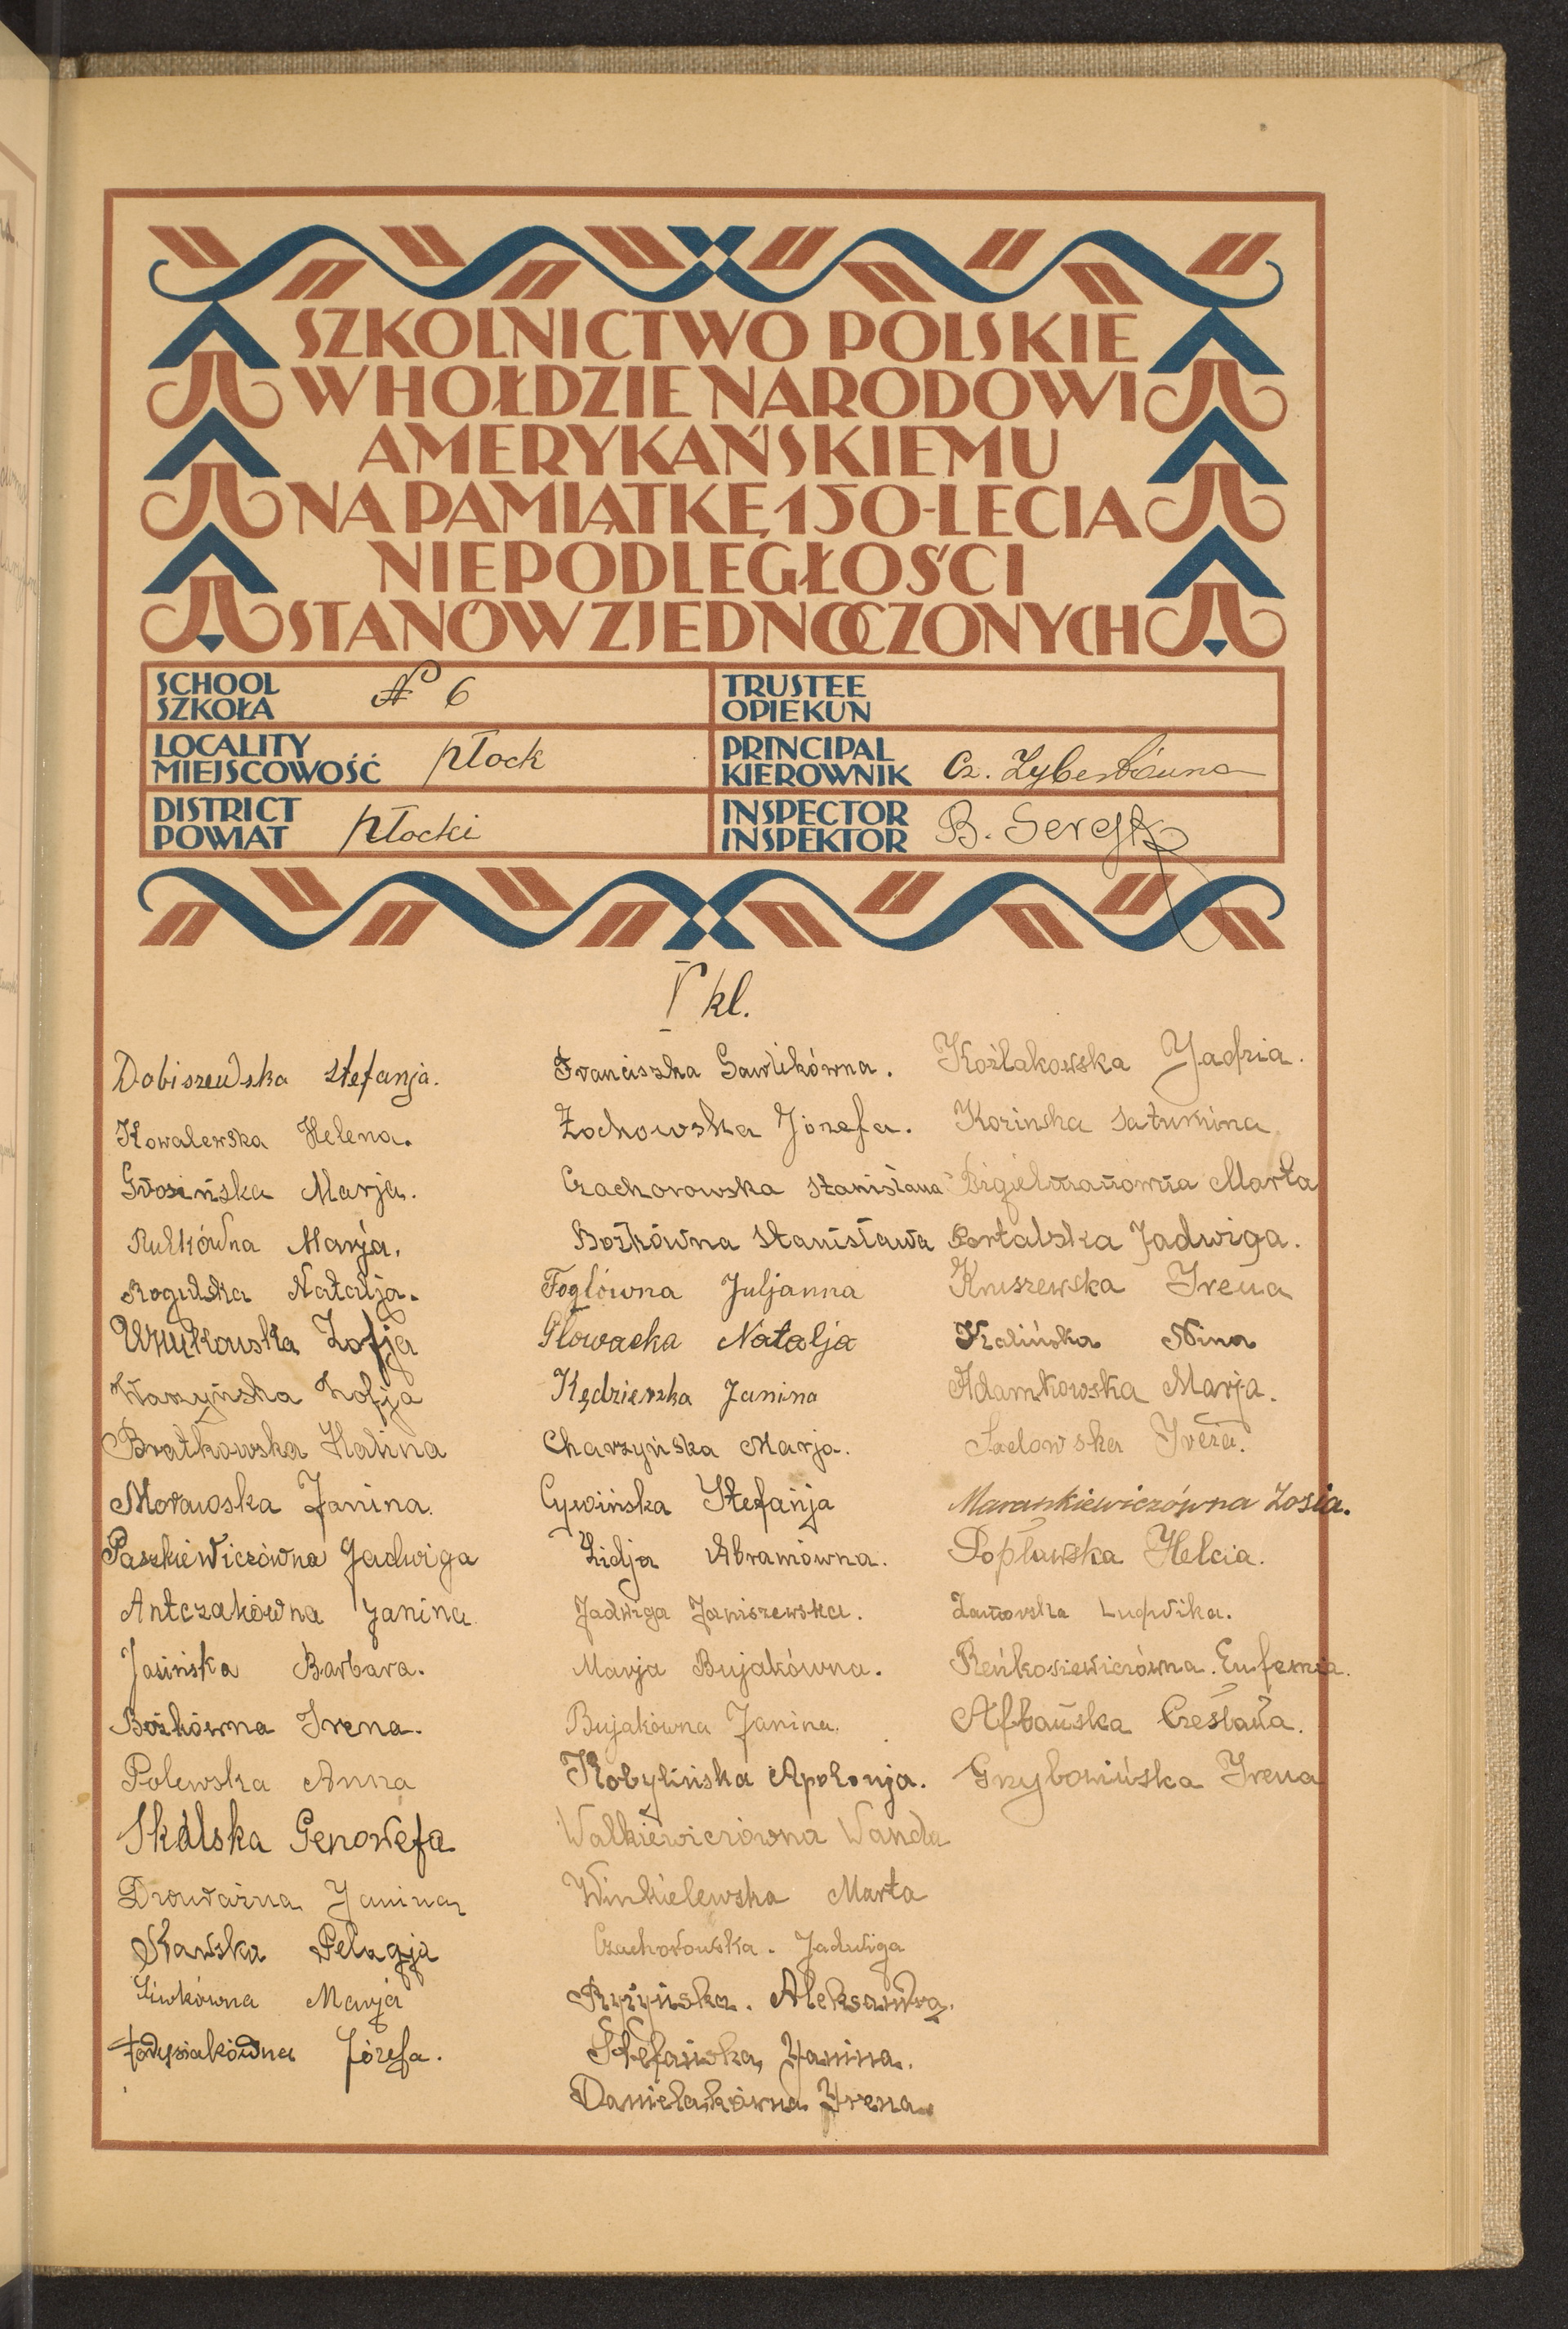 SZKOLNICTWO POLSKIE
W HOŁDZIE NARODOWI
AMERYKAŃSKIEMU
NA PAMIĄTKĘ 150-LECIA
NIEPODLEGŁOŚCI
STANÓW ZJEDNOCZONYCH
SCHOOL
SZKOŁA
№ 6
TRUSTEE
OPIEKUN
LOCALITY
MIEJSCOWOŚĆ
Płock
PRINCIPAL
KIEROWNIK
Cz. Zybertówna
DISTRICT
POWIAT
Płocki
INSPECTOR
INSPEKTOR
B.
V kl.
Dobiszewska Stefanja.
Kowalewska Helena.
Grosińska Marja.
Rutkówna Marja.
Rogulska Natalja.
Zofja
Warzyńska Zofja
Bratkowska Halina
Morawska Janina.
Paszkiewiczówna Jadwiga
Antczakówna Janina
Jasińska Barbara.
Bożkówna Irena.
Polewska Anna
Skalska Genowefa
Janina
Skawska Pelagja
Marja
Józefa.
Franciszka Gawlikówna.
Żochowska Józefa.
Czachorowska Stanisława
Bożkówna Stanisława
Foglówna Juljanna
Głowacka Natalja
Kędzierska Janina
Charzyńska Marja.
Cywińska Stefanja
Lidja Abramówna.
Jadwiga Janiszewska.
Marja Bujakówna.
Bujakówna Janina.
Kobylińska Apolonja.
Walkiewiczówna Wanda
Winkielewska Marta
Czachorowska. Jadwiga
Ryżyńska. Aleksandra.
Stefańska, Janina.
Danielakówna Irena.
Koźlakowska Jadzia.
Kozinska Saturnina
Bigielmanówna Marta
Portalska Jadwiga.
Kruszewska Irena
Kalińska Nina
Adamkowska Marja.
Sadowska
Marankiewiczówna Zosia.
Popławska Helcia.
Ludwika.
Reńkosiewiczówna. Eufemia.
Czesława.
Grzybowińska Irena